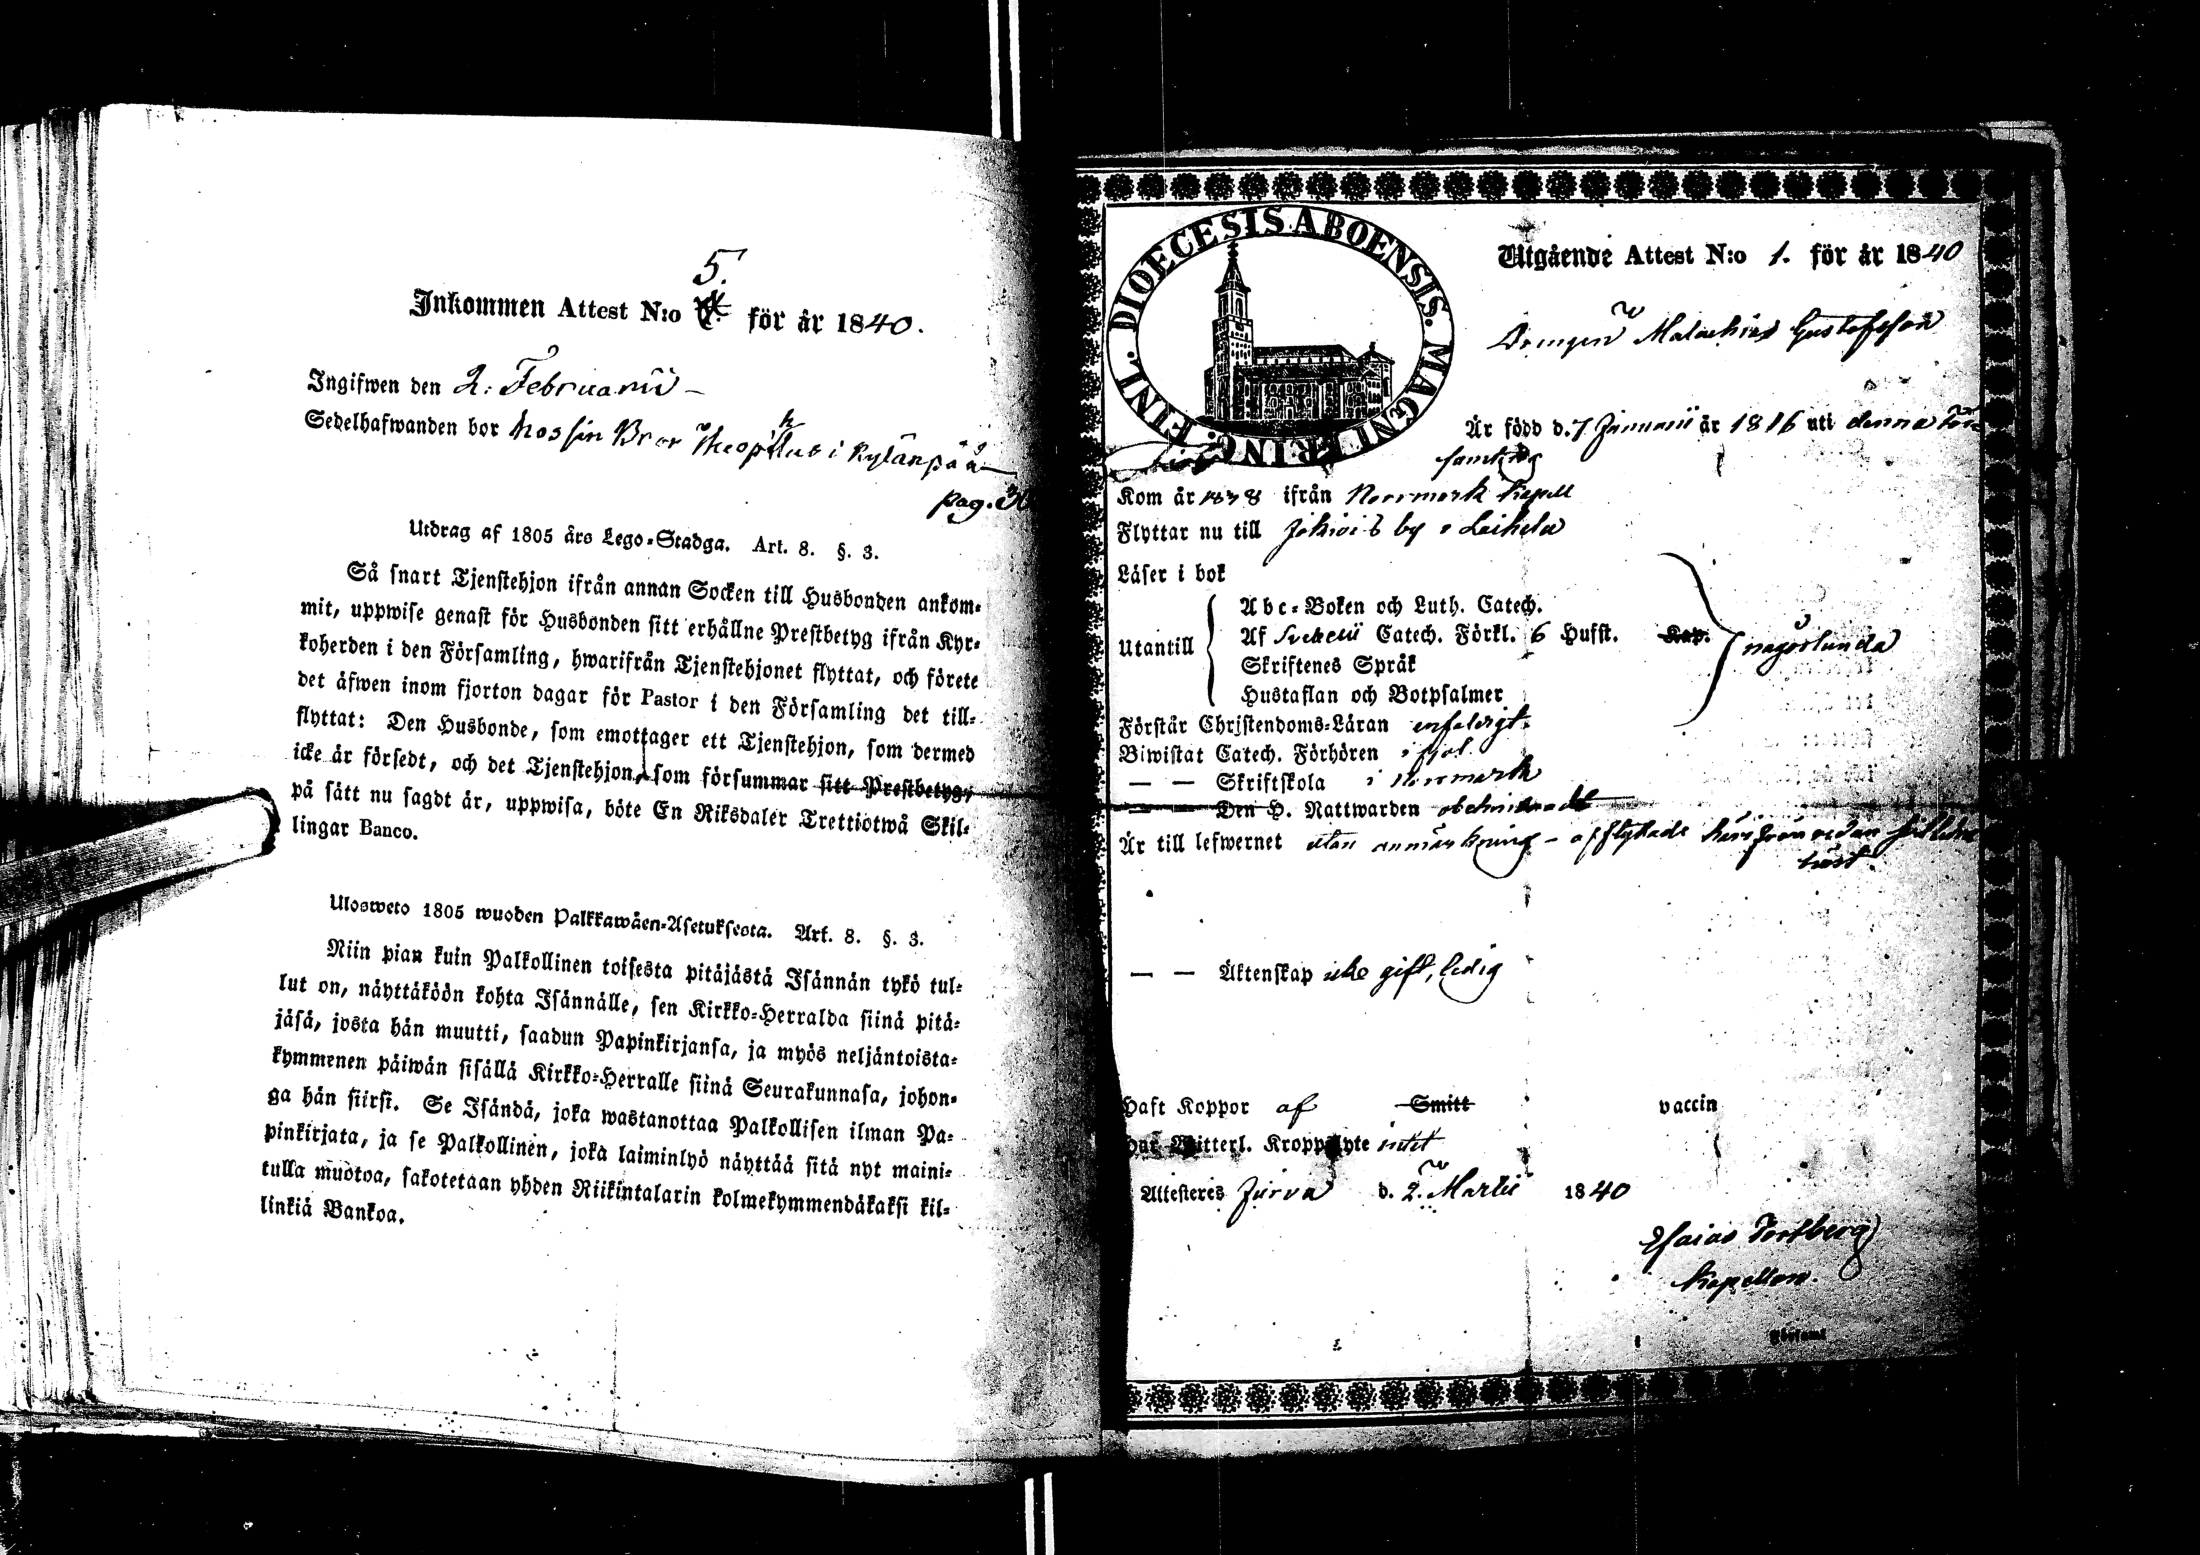 5.
Inkommen Attest N:o för år 1840.
Ingifwen den 2: Februarii –
Sedelhafwanden bor hos sin Bror Theophilus i Kylänpää
pag. 30
Utdrag af 1805 års Lego-Stadga. Art. 8. §. 3.
Så snart Tjenstehjon ifrån annan Socken till Husbonden ankom-
mit, uppwise genast för Husbonden sitt erhållne Prestbetyg ifrån Kyr-
koherden i den Församling, hwarifrån Tjenstehjonet flyttat, och förete
det äfwen inom fjorton dagar för Pastor i den Församling det till-
flyttat: Den Husbonde, som emottager ett Tjenstehjon, som dermed
icke är försedt, och det Tjenstehjon, som försummar sitt Prestbetyg,
på sätt nu sagdt är, uppwisa, böte En Riksdaler Trettiotwå Skil-
lingar Banco.
Ulosweto 1805 wuoden Palkkawäen-Asetuksesta. Art. 8. §. 3.
Niin pian kuin Palkollinen toisesta pitäjästä Isännän tykö tul-
lut on, näyttäköön kohta Isännälle, sen Kirkko-Herralda siinä pitä-
jäsä, josta hän muutti, saadun Papinkirjansa, ja myös neljäntoista-
kymmenen päiwän sisällä Kirkko-Herralle siinä Seurakunnasa, johon-
ga hän siirsi. Se Isändä, joka wastanottaa Palkollisen ilman Pa-
pinkirjata, ja se Palkollinen, joka laiminlyö näyttää sitä nyt maini-
tulla muotoa, sakotetaan yhden Riikintalarin kolmekymmendäkaksi kil-
linkiä Bankoa.
DIOECESIS ABOENSIS. MAGNI PRINC. FINL.
Utgående Attest N:o 1. för år 1840
Drengen Malachias Gustafsson
Är född d. 7 Januarii år 1816 uti denna För-
samling
Kom år 1838 ifrån Norrmark Kapell
Flyttar nu till Jokiois by i Laihela
Läser i bok
Utantill
Abc-Boken och Luth. Catech.
Af Svebelii Catech. Förkl. 6 Hufst. Kap.
Skriftenes Språk
Hustaflan och Botpsalmer
någorlunda
Förstår Christendoms-Läran enfaldigt.
Biwistat Catech. Förhören i fjol.
— — Skriftskola i Norrmark
— — Den H. Nattwarden obehindradt
Är till lefwernet utan anmärkning – afflyttade härifrån redan sistledne
höst
— — Äktenskap icke gift, ledig
Haft Koppor af Smitt vaccin
Har Witterl. Kroppslyte intet
Attesteres Jurva d. 2. Martii 1840
Esaias Fortberg
Kapellan.